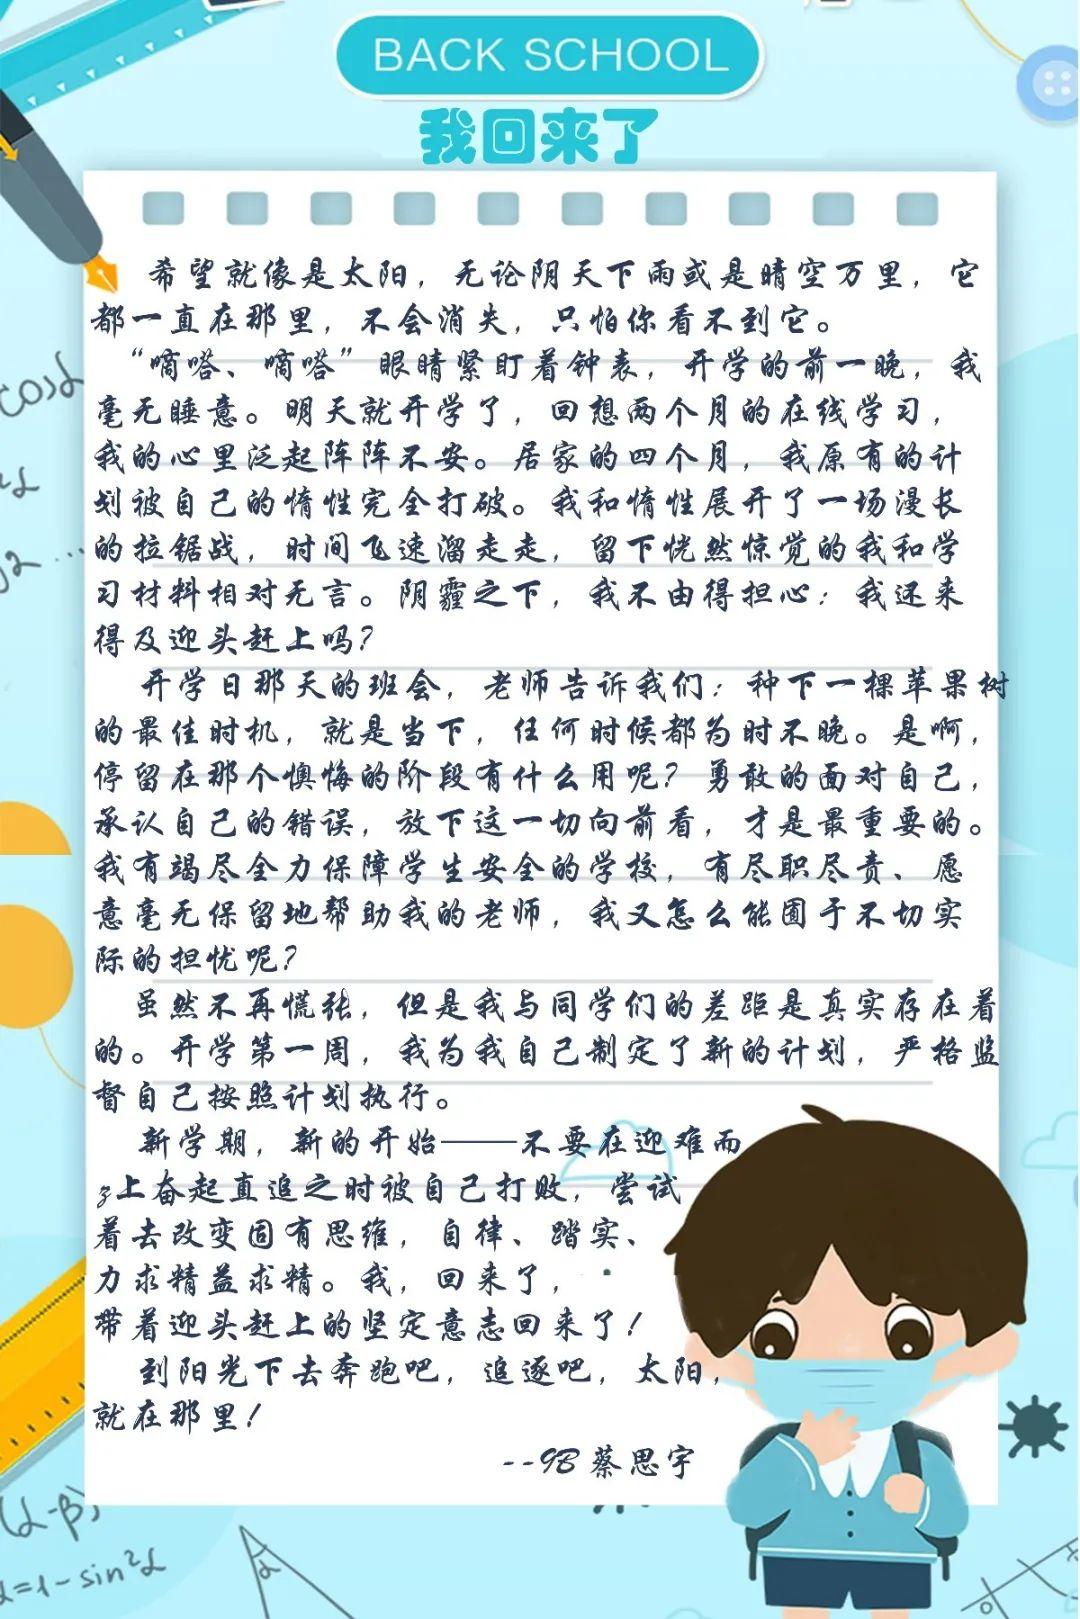 BACK SCHOOL
我回来了
希望就像是太阳，无论阴天下雨或是晴空万里，它
都一直在那里，不会消失，只怕你看不到它。
“嘀嗒、嘀嗒”眼睛紧盯着钟表，开学的前一晚，我
毫无睡意。明天就开学了，回想两个月的在线学习，
我的心里泛起阵阵不安。居家的四个月，我原有的计
划被自己的惰性完全打破。我和惰性展开了一场漫长
的拉锯战，时间飞速溜走走，留下恍然惊觉的我和学
习材料相对无言。阴霾之下，我不由得担心：我还来
得及迎头赶上吗？
开学日那天的班会，老师告诉我们：种下一棵苹果树
的最佳时机，就是当下，任何时候都为时不晚。是啊，
停留在那个懊悔的阶段有什么用呢？勇敢的面对自己，
承认自己的错误，放下这一切向前看，才是最重要的。
我有竭尽全力保障学生安全的学校，有尽职尽责、愿
意毫无保留地帮助我的老师，我又怎么能囿于不切实
际的担忧呢？
虽然不再慌张，但是我与同学们的差距是真实存在着
的。开学第一周，我为我自己制定了新的计划，严格监
督自己按照计划执行。
新学期，新的开始——不要在迎难而
z上奋起直追之时被自己打败，尝试
着去改变固有思维，自律、踏实、
力求精益求精。我，回来了，
带着迎头赶上的坚定意志回来了！
到阳光下去奔跑吧，追逐吧，太阳，
就在那里！
--9B 蔡思宇
cosα
(α-β)
=1-sin²α
α